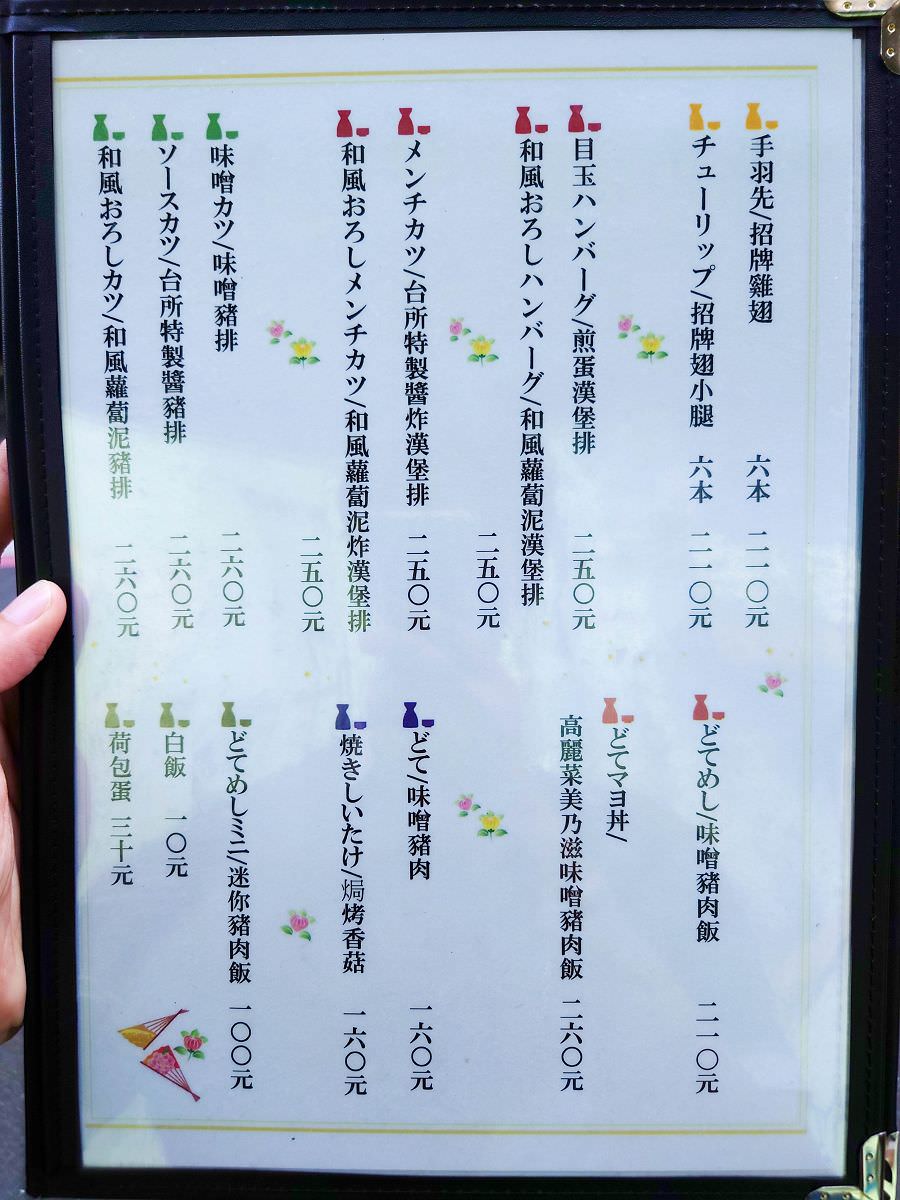 手羽先/招牌雞翅 六本 二一〇元
チューリップ/招牌翅小腿 六本 二一〇元
目玉ハンバーグ/煎蛋漢堡排 二五〇元
和風おろしハンバーグ/和風蘿蔔泥漢堡排
二五〇元
メンチカツ/台所特製醬炸漢堡排 二五〇元
和風おろしメンチカツ/和風蘿蔔泥炸漢堡排
二五〇元
味噌カツ/味噌豬排 二六〇元
ソースカツ/台所特製醬豬排 二六〇元
和風おろしカツ/和風蘿蔔泥豬排 二六〇元
どてめし/味噌豬肉飯 二一〇元
どてマヨ丼/
高麗菜美乃滋味噌豬肉飯 二六〇元
どて/味噌豬肉 一六〇元
焼きしいたけ/焗烤香菇 一六〇元
どてめしミニ/迷你豬肉飯 一〇〇元
白飯 一〇元
荷包蛋 三十元